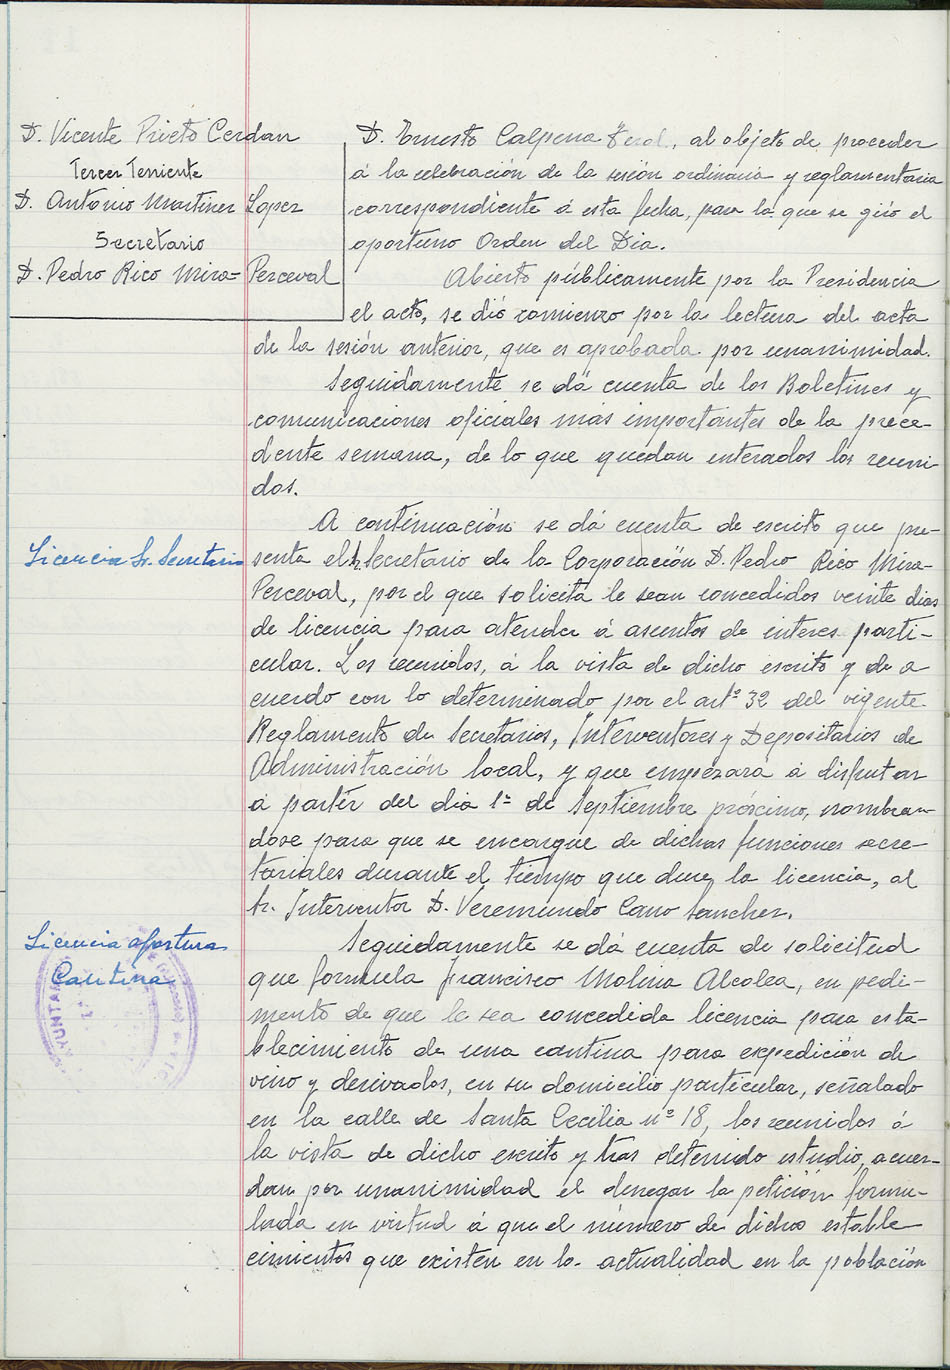 D. Vicente Prieto Cerdan
Tercer Teniente
D. Antonio Martinez Lopez
Secretario
D. Pedro Rico Mira-Perceval
D. Ernesto Calpena, al objeto de proceder
á la celebración de la sesión ordinaria y reglamentaria
correspondiente á esta fecha, para la que se giró el
oportuno Orden del Dia.
Abierto públicamente por la Presidencia
el acto, se dió comienzo por la lectura del acta
de la sesión anterior, que es aprobada por unanimidad.
Seguidamente se dá cuenta de los Boletines y
comunicaciones oficiales mas importantes de la prece-
dente semana, de lo que quedan enterados los reuni-
dos.
Licencia Sr. Secretario
A continuación se dá cuenta de escrito que pre-
senta el Secretario de la Corporación D. Pedro Rico Mira-
Perceval, por el que solicita le sean concedidos veinte dias
de licencia para atender á asuntos de interes parti-
cular. Los reunidos, á la vista de dicho escrito y de a
cuerdo con lo determinado por el artº 32 del vigente
Reglamento de Secretarios, Interventores y Depositarios de
Administración local, y que empezará á disfrutar
á partir del dia 1º de Septiembre próximo, nombran-
dose para que se encargue de dichas funciones secre-
tariales durante el tiempo que dure la licencia, al
Sr. Interventor D. Veremundo Cano Sanchez.
Licencia apertura
Cantina
Seguidamente se dá cuenta de solicitud
que formula Francisco Molina Alcolea, en pedi-
mento de que le sea concedida licencia para esta-
blecimiento de una cantina para expedición de
vino y derivados, en su domicilio particular, señalado
en la calle de Santa Cecilia nº 18, los reunidos á
la vista de dicho escrito y tras detenido estudio, acuer-
dan por unanimidad el denegar la petición formu-
lada en virtud á que el número de dichos estable
cimientos que existen en la actualidad en la población